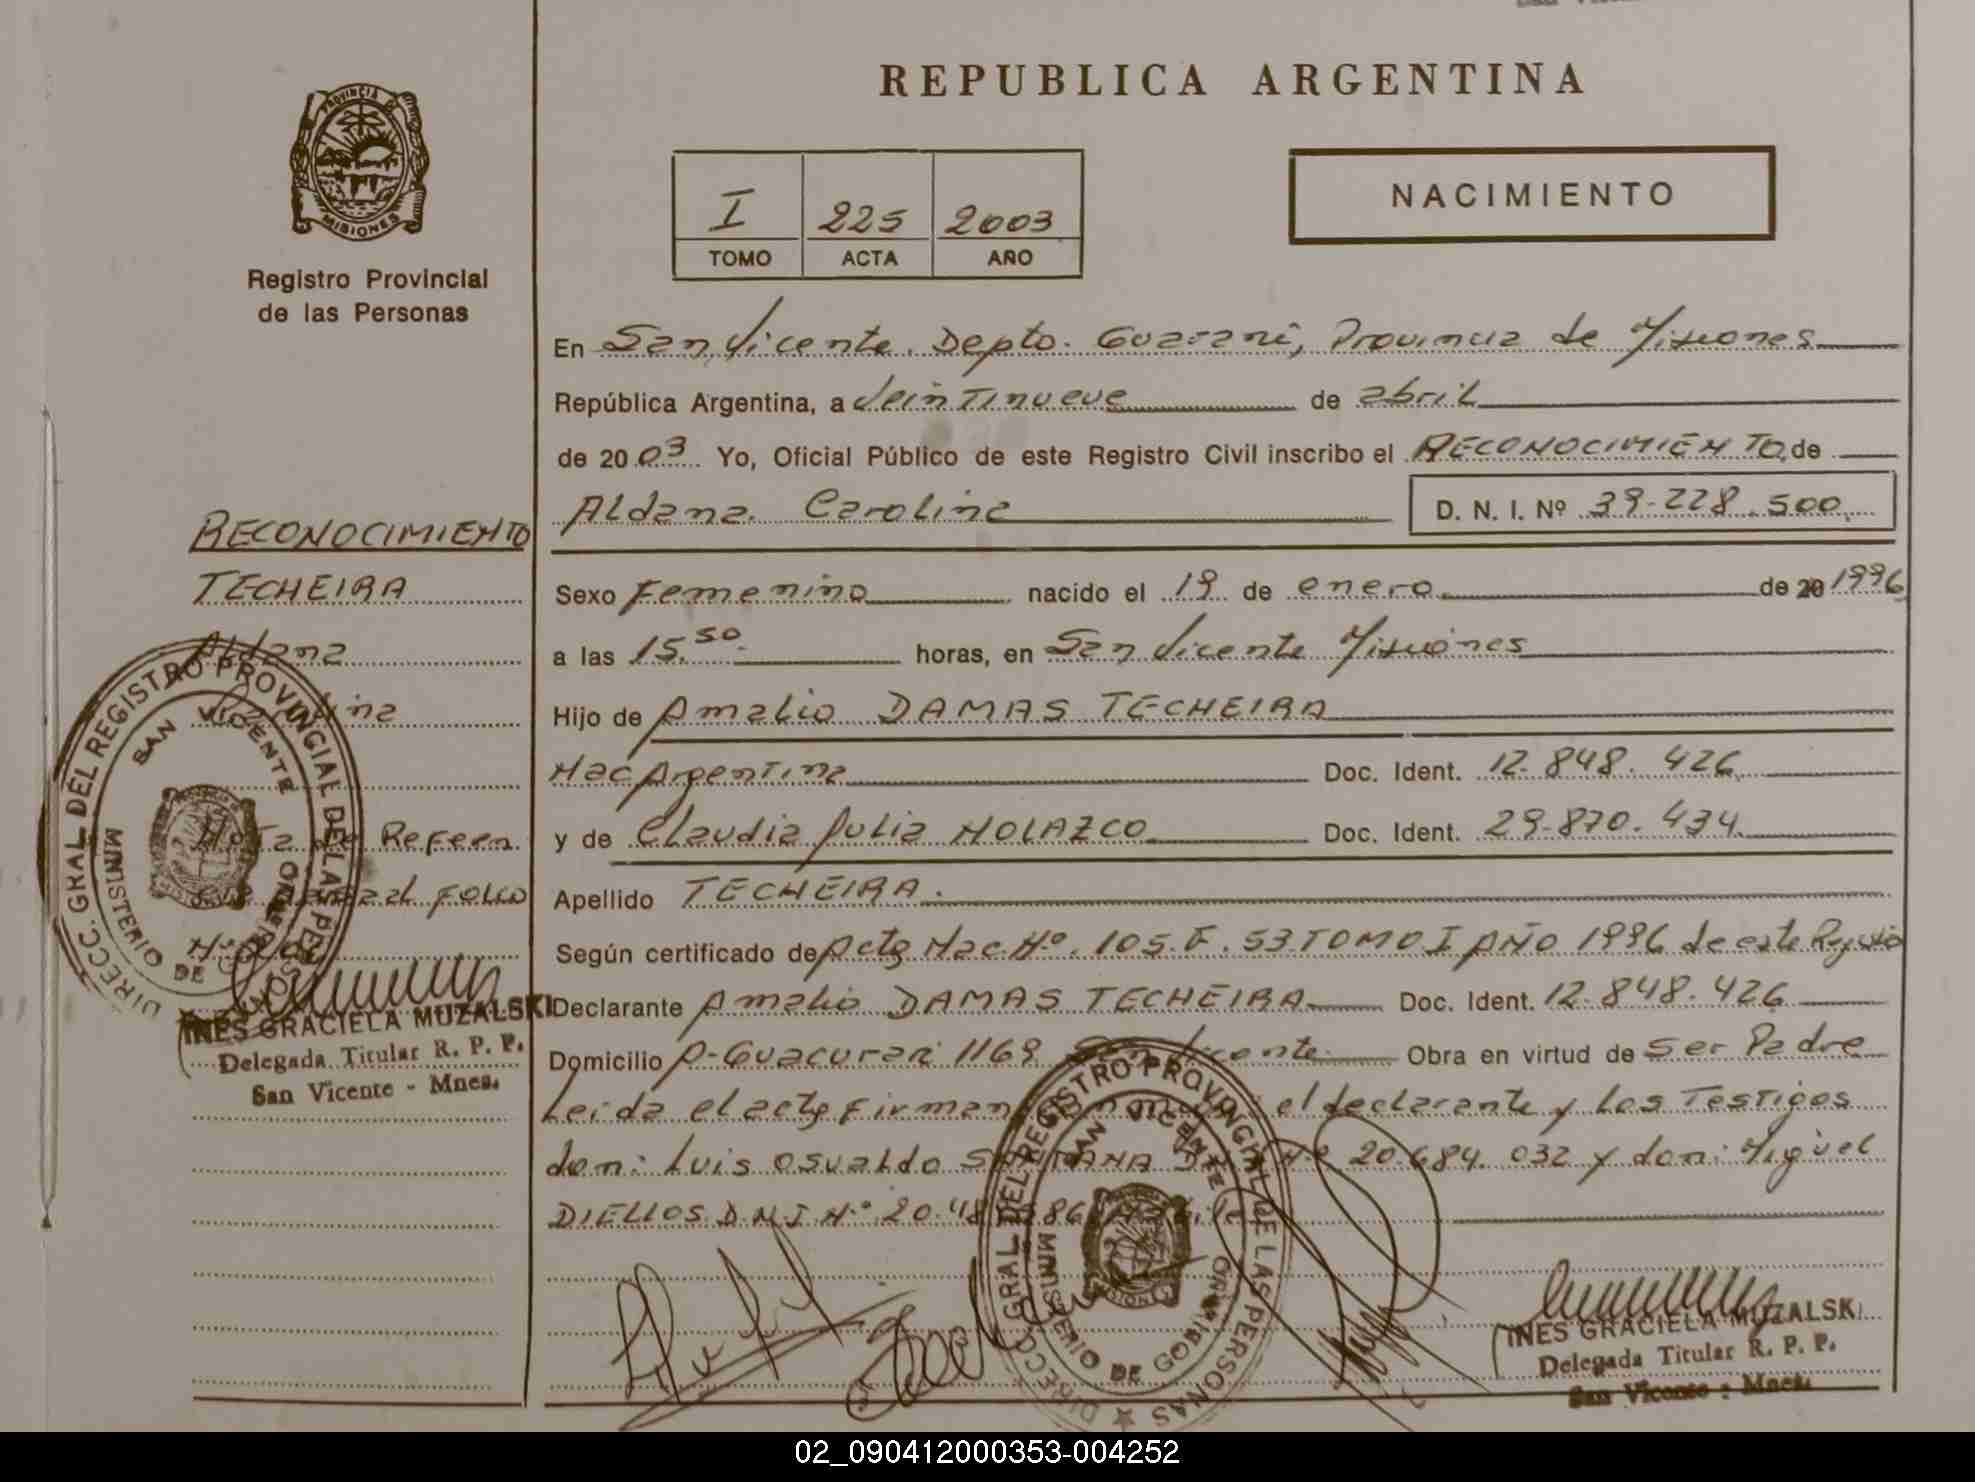 REPUBLICA ARGENTINA
PROVINCIA DE
MISIONES
Registro Provincial
de las Personas
I 225 2003
TOMO ACTA AÑO
NACIMIENTO
En San Vicente. Depto. Guarani, Provincia de Misiones
República Argentina, a Veintinueve de abril
de 2003 Yo, Oficial Público de este Registro Civil inscribo el RECONOCIMIENTO de
Aldana Carolina D. N. I. Nº 39-228.500
Sexo Femenino nacido el 19 de enero de 20 1996
a las 15.50 horas, en San Vicente Misiones
Hijo de Amalio DAMAS TECHEIRA
Nac Argentina Doc. Ident. 12.848.426
y de Claudia Julia NOLAZCO Doc. Ident. 29-870.434
Apellido TECHEIRA.
Según certificado de Acta Nac. Nº. 105. F. 53. TOMO I AÑO 1996 de este Registro
Declarante Amalio DAMAS TECHEIRA Doc. Ident. 12.848.426
Domicilio A-Guacurari 1169 San Vicente Obra en virtud de Ser Padre
Leida el acta firman el declarante y los Testigos
don: Luis Osvaldo 20.684.032 y don: Miguel
DIELLOS D.N.I Nº. 20.
INES GRACIELA MUZALSKI
Delegada Titular R. P. P.
San Vicente - Mnes.
RECONOCIMIENTO
TECHEIRA
Aldana
Carolina
Nota de Referen
folio
INES GRACIELA MUZALSKI
Delegada Titular R. P. P.
San Vicente - Mnes.
DIRECC. GRAL DEL REGISTRO PROVINCIAL DE LAS PERSONAS
SAN VICENTE
MINISTERIO DE GOBIERNO
DIRECC. GRAL DEL REGISTRO PROVINCIAL DE LAS PERSONAS
SAN VICENTE
MINISTERIO DE GOBIERNO
02_090412000353-004252